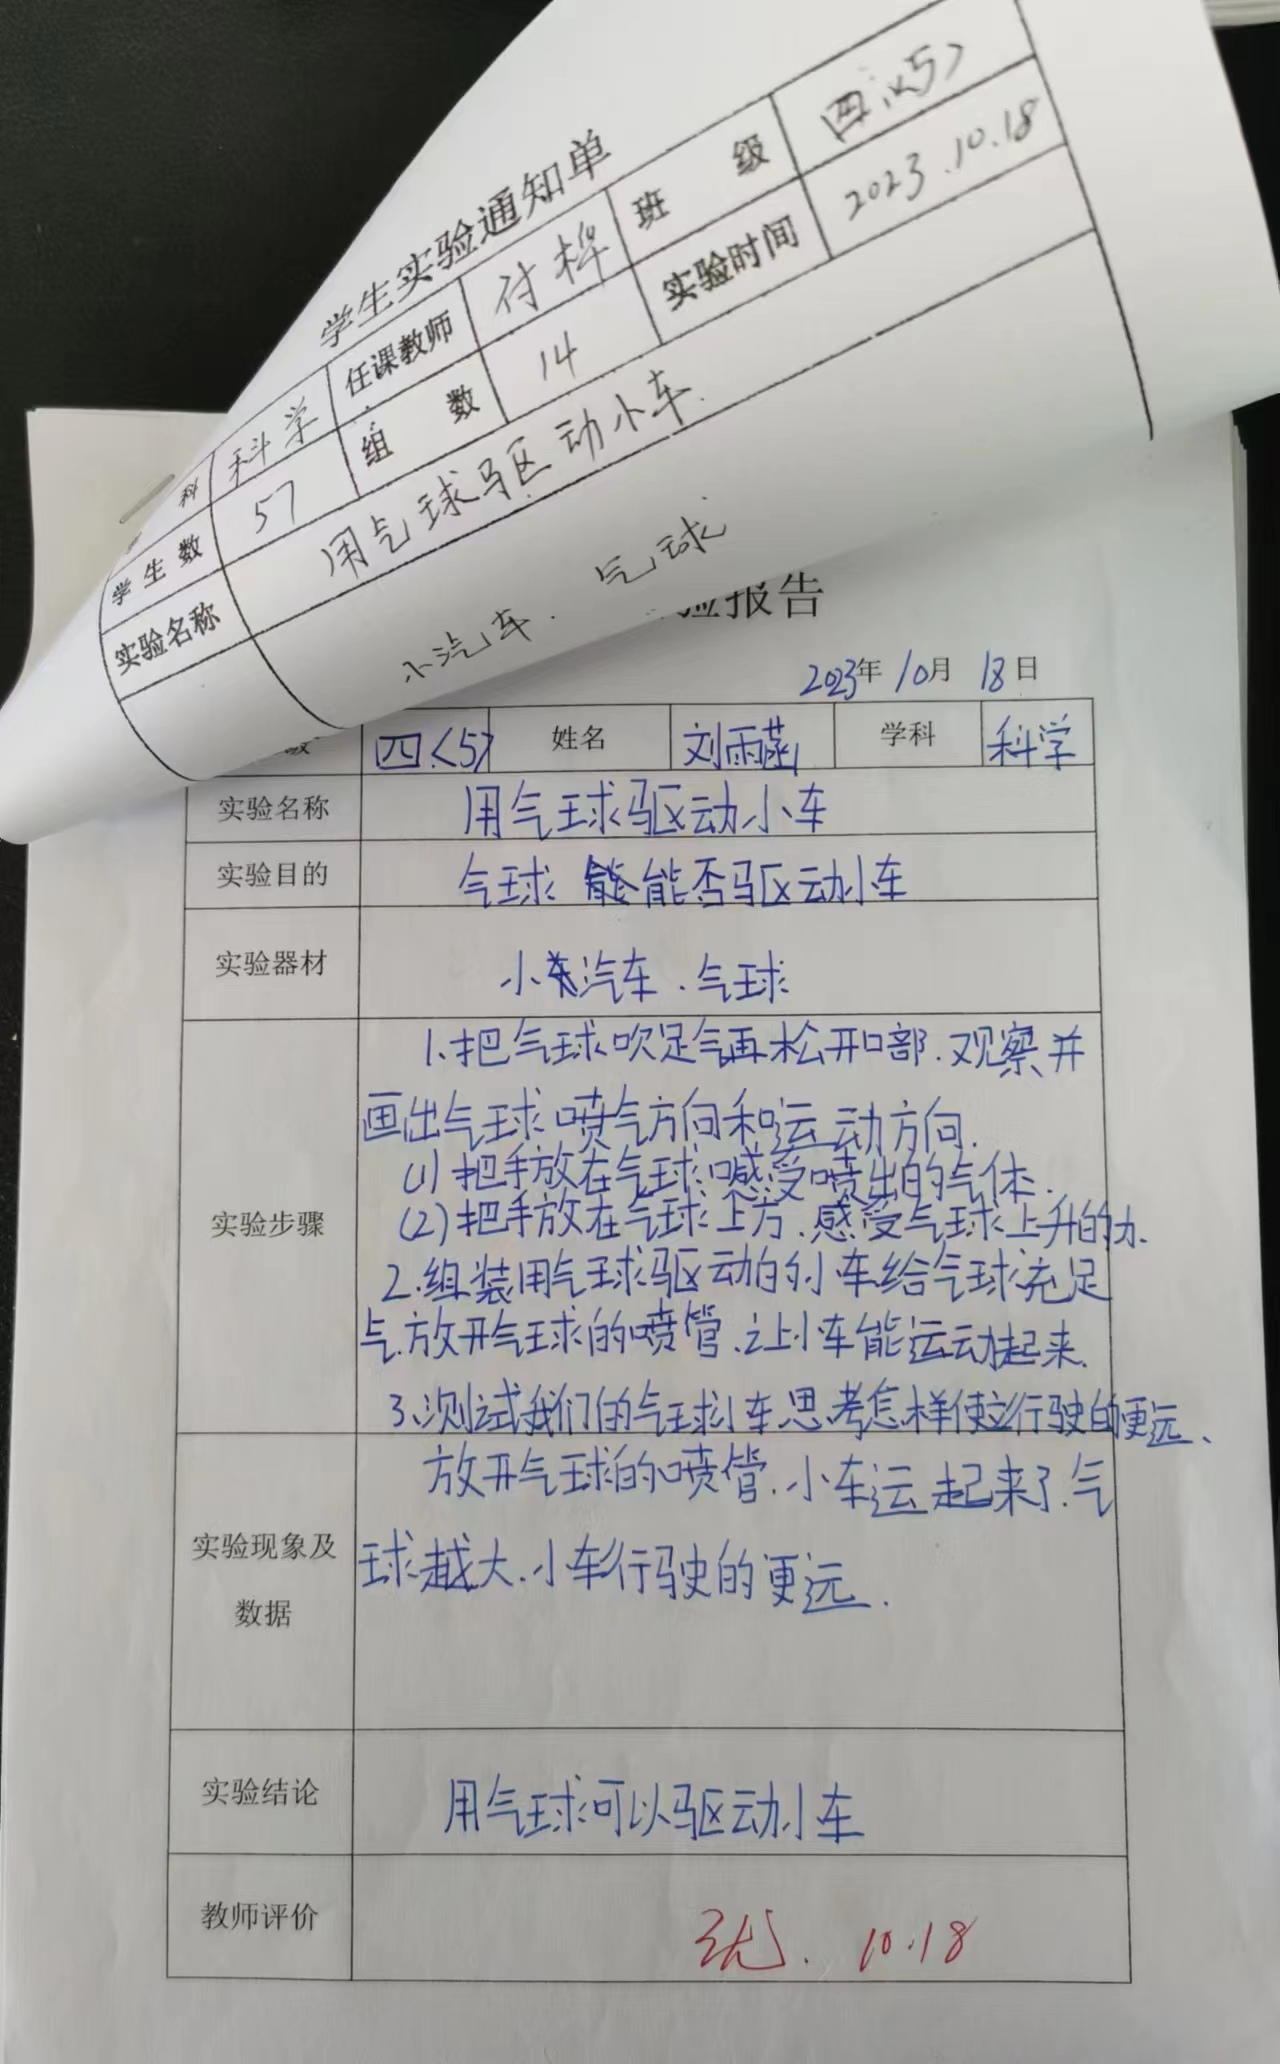 学生实验通知单
科 科学 任课教师 付桦 班级 四(5)
学生数 57 组数 14 实验时间 2023.10.18
实验名称 用气球驱动小车.
小汽车. 气球
验报告
2023年10月18日
四<5> 姓名 刘雨菡 学科 科学
实验名称 用气球驱动小车
实验目的 气球能否驱动小车
实验器材 小汽车.气球
实验步骤
1.把气球吹足气再松开口部.观察并
画出气球喷气方向和运动方向.
(1)把手放在气球口感受喷出的气体.
(2)把手放在气球上方.感受气球上升的力.
2.组装用气球驱动的小车给气球充足
气.放开气球的喷管.让小车能运动起来.
3.测试我们的气球小车思考怎样使它行驶的更远、
实验现象及
数据
放开气球的喷管.小车运起来了.气
球越大.小车行驶的更远.
实验结论 用气球可以驱动小车
教师评价 优. 10.18